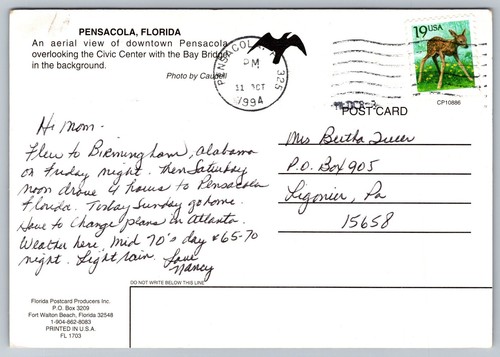 PENSACOLA, FLORIDA
An aerial view of downtown Pensacola
overlooking the Civic Center with the Bay Bridge
in the background.
Photo by Caudill
PENSACOLA
325
PM
11 OCT
1994
19 USA
CP10886
POST CARD
Hi Mom -
Flew to Birmingham, Alabama
on Friday night. then Saturday
noon drove 4 hours to Pensacola
Florida. Today Sunday go home.
Have to Change plans in Atlanta.
Weather here, Mid 70's day & 65-70
night. Light rain. Love
Nancy
Mrs Bertha
P.O. Box 905
Ligonier, Pa
15658
DO NOT WRITE BELOW THIS LINE
Florida Postcard Producers Inc.
P.O. Box 3209
Fort Walton Beach, Florida 32548
1-904-862-8083
PRINTED IN U.S.A.
FL 1703